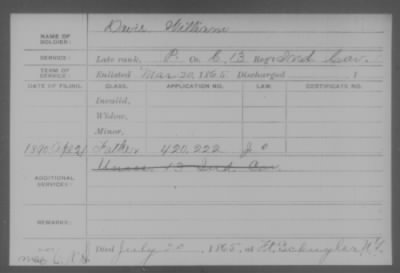 NAME OF SOLDIER: Davis William
SERVICE: Late rank, P. Co. C, 13 Reg't Ind Cav.
TERM OF SERVICE: Enlisted Mar 20, 1865 Discharged 1
DATE OF FILING. CLASS. APPLICATION NO. LAW. CERTIFICATE NO.
Invalid,
Widow,
Minor,
1890 Father 420,222 J
ADDITIONAL SERVICES: 13 Ind. Cav.
REMARKS:
Died July 20 1865, at Ft. Schuyler N.Y.